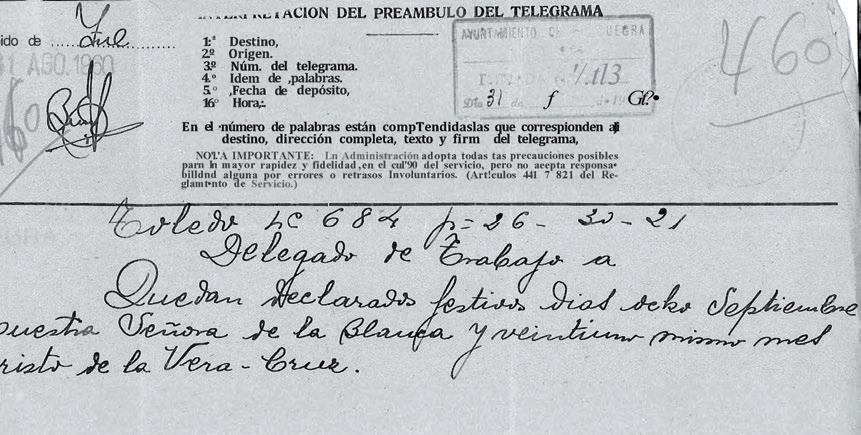 INTERPRETACION DEL PREAMBULO DEL TELEGRAMA
ido de ..... Jul
31 AGO. 1960
1.ª Destino,
2.º Origen.
3.º Núm. del telegrama.
4.º Idem de ,palabras.
5.º ,Fecha de depósito,
16º Hora,.
AYUNTAMIENTO
1.113
Día 31 de
460
En el ·número de palabras están compTendidaslas que corresponden a
destino, dirección completa, texto y firm del telegrama,
NOTA IMPORTANTE: La Administración adopta todas tas precauciones posibles
parn ln mayor rapidez y fidelidad, en el cul'90 del servicio, pero no aepta responsa-
billdnd alguna por errores o retrasos Involuntarios. (Artículos 441 7 821 del Re-
glamtnto de Servicio.)
Toledo LC 684 p= 26 - 30 - 21
Delegado de Trabajo a
Quedan declarados festivos dias ocho Septiembre
nuestra Señora de la Blanca y veintiuno mismo mes
risto de la Vera-Cruz.